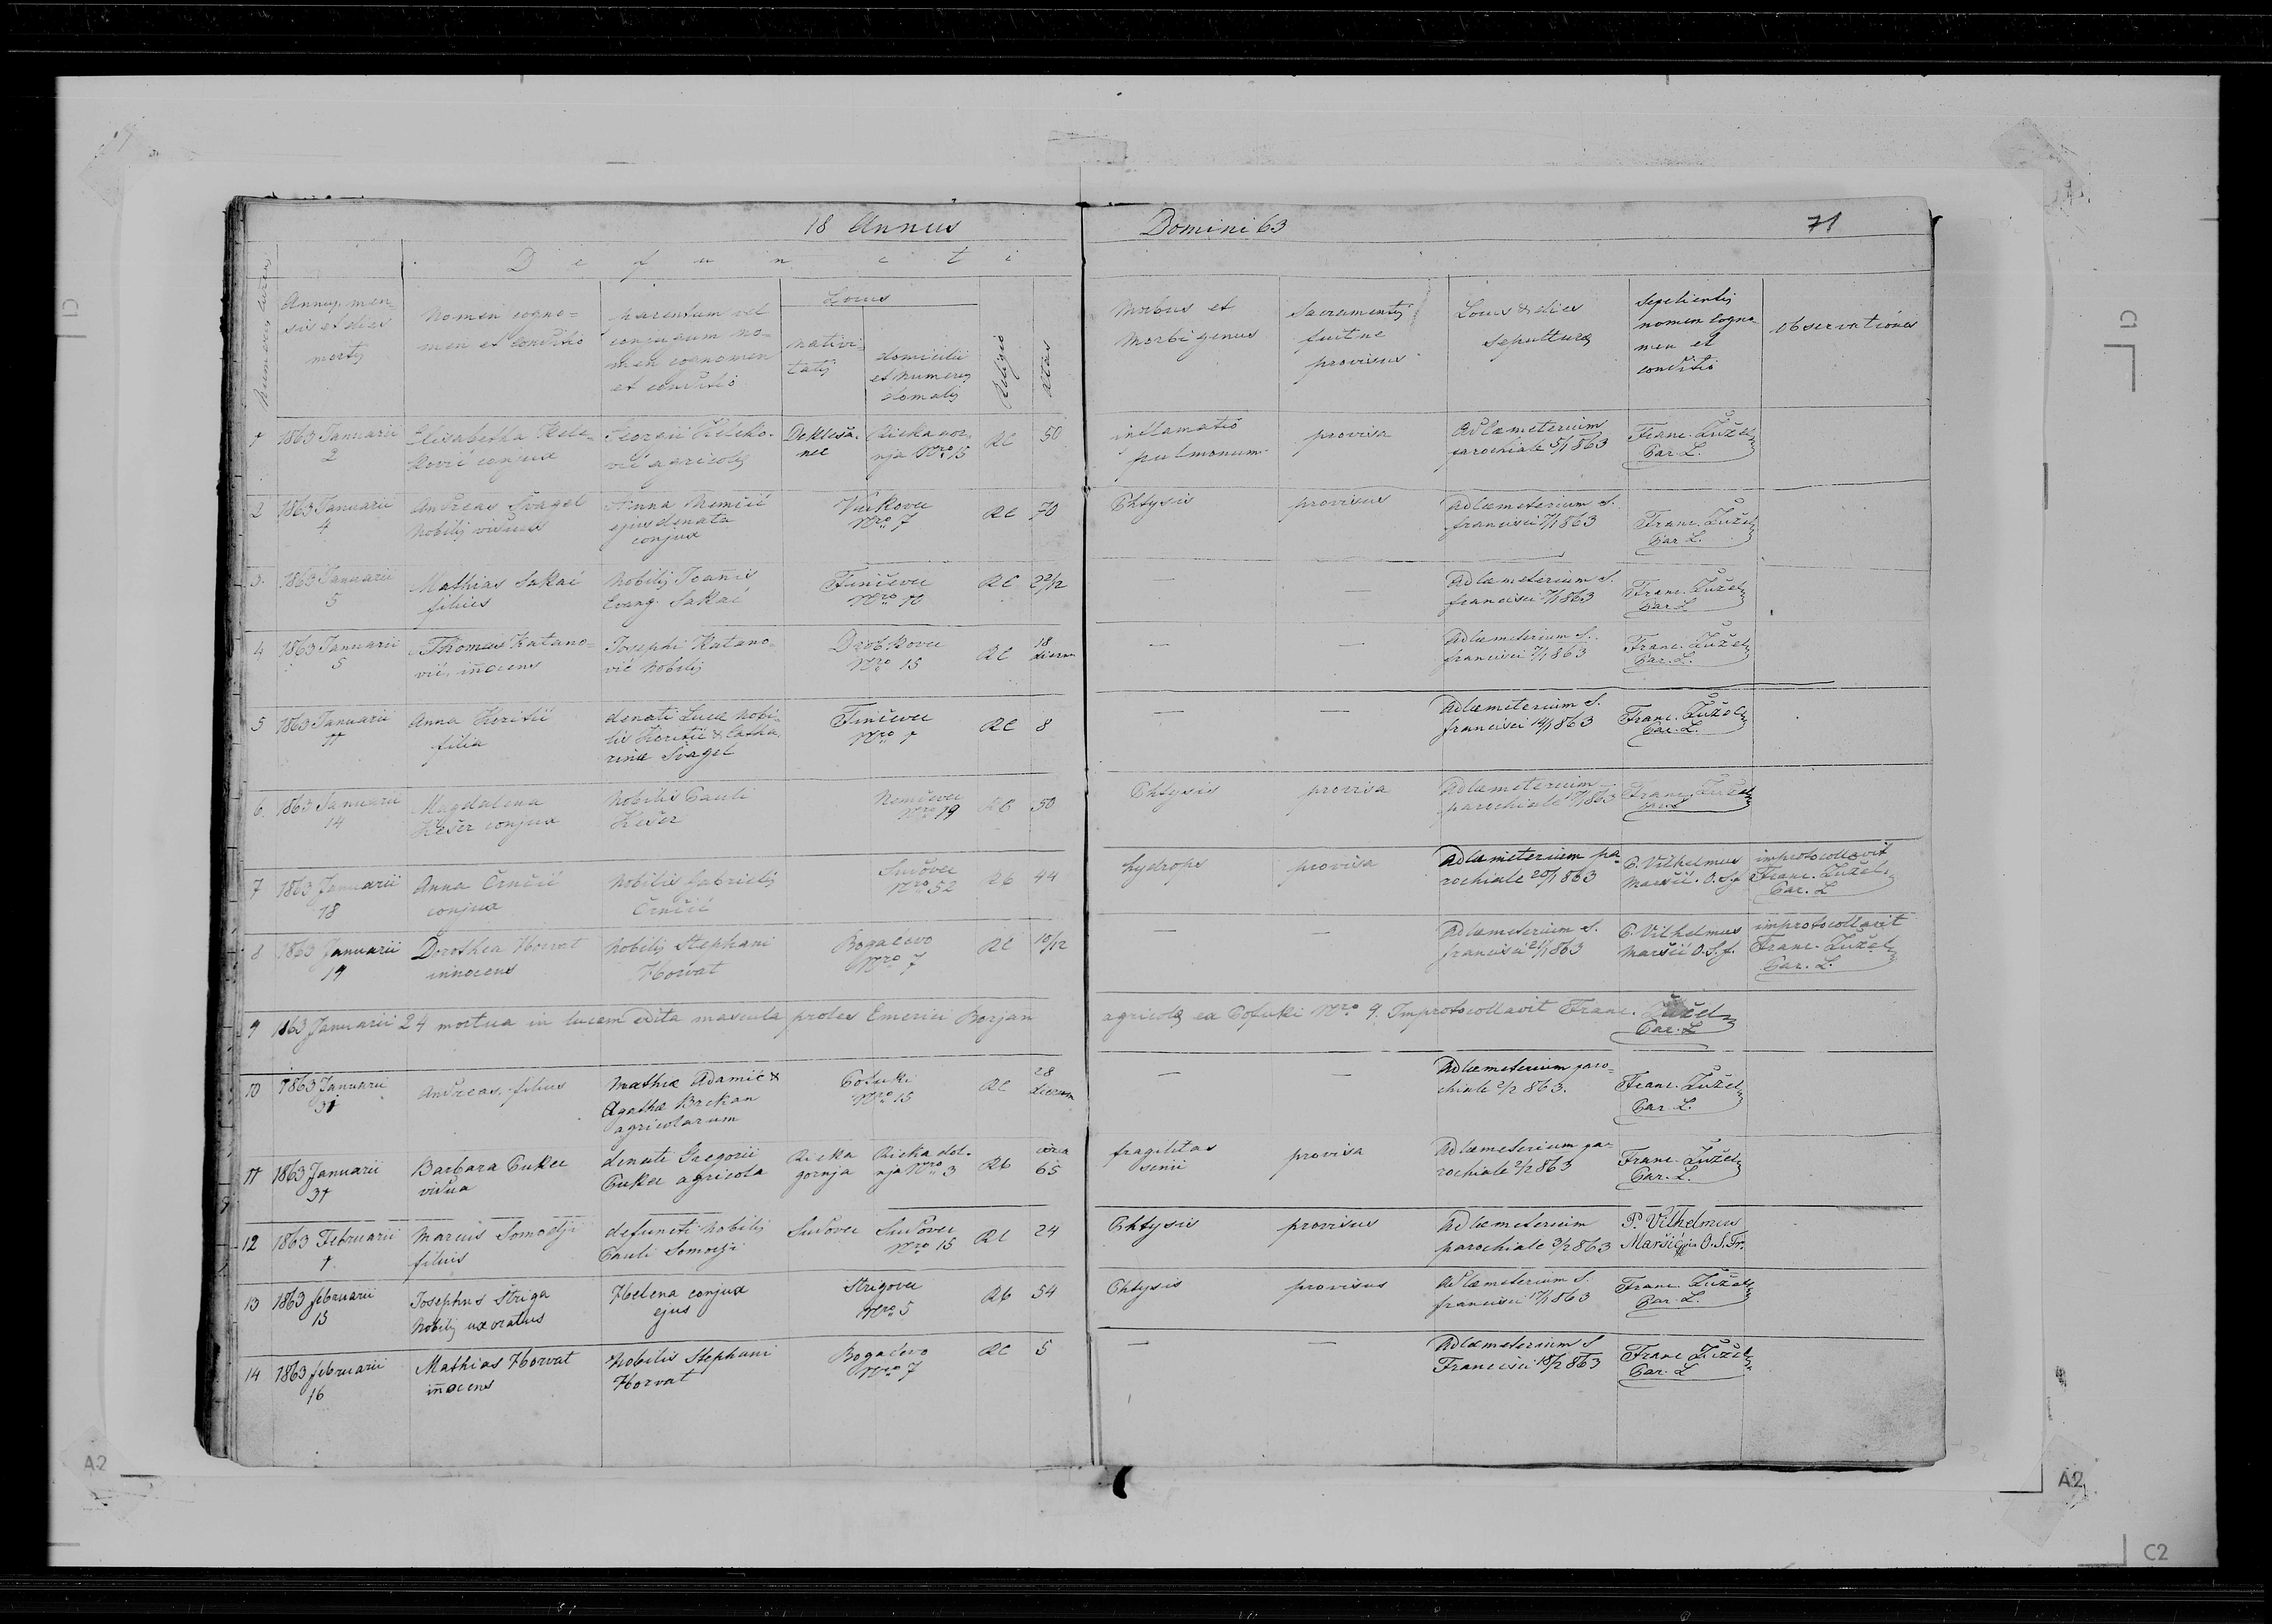 18 Annus Domini 63 71
D e f u n c t i
Numerus curens
Annus, men=
sis et dies
mortis
Nomen cogno=
men et conditio
parentum vel
conjugum no=
men cognomen
et conditio
Locus
nativi=
tatis
domicilii
et numerus
domalis
Religio
aetas
Morbus et
Morbi genus
Sacramentis
fuit ne
provisus
Locus & dies
sepulturae
Sepelientis
nomen cogno
men et
conditio
observationes
1 1863 Januarii
2
Elisabetha Kele=
ković conjux
Georgii Keleko=
vić agricolae
Rieka gor=
nja Nro 15
RC 50
inflamatio
pulmonum
provisa
Ad caemeterium
parochiale 5/1 863
Franc. Žužel
Par. L.
2 1863 Januarii
4
Andreas Švagel
Nobilis viduus
Anna Nemčić
ejus denata
conjux
Vukovec
Nro 7
RC 70
Phtysis
provisus
Ad caemeterium S.
francisci 7/1 863
Franc. Žužel
Par. L.
3. 1863 Januarii
5
Mathias Sakač
filius
Nobilis Joanis
Evang. Sakač
Finčevec
Nro 10
RC 2 2/12
— —
Ad caemeterium S.
francisci 7/1 863
Franc. Žužel
Par. L
4 1863 Januarii
5
Thomas Katano=
vić, inocens
Josephi Katano=
vić Nobilis
Drobkovec
Nro 15
RC 18
dierum
— —
Ad caemeterium S.
francisci 7/1 863
Franc. Žužel
Par. L.
5 1863 Januarii
11
Anna
filia
denati Lucae Nobi=
lis & Catha=
rinae Švagel
Finčevec
Nro 1
RC 8
— —
Ad caemeterium S.
francisci 14/1 863
Franc. Žužel
Par. L.
6. 1863 Januarii
14
Magdalena
Kešer conjux
Nobilis Pauli
Kešer
Nemčevec
Nro 19
RC 50
Phtysis
provisa
Ad caemeterium
parochiale 863
Franc. Žužel
Par. L
7 1863 Januarii
18
Anna Črnčić
conjux
Nobilis Gabrielis
Črnčić
Sudovec
Nro 52
RC 44
hydrops
provisa
Ad caemeterium pa
rochiale 20/1 863
P. Vilhelmus
Maršić. O.S.f
improtocollavit
Franc. Žužel
Par. L
8 1863 Januarii
19
Dorothea Horvat
innocens
Nobilis Stephani
Horvat
Bogačevo
Nro 7
RC 10/12
— —
Ad caemeterium S.
francisci 21/1 863
P. Vilhelmus
Maršić O.S.f.
improtocollavit
Franc. Žužel
Par. L.
9 1863 Januarii 24 mortua in lucem edita mascula proles Emerici Borjan agricolae ex Pofuki Nro 9. Improtocollavit Franc. Žužel
Par. L
10 1863 Januarii
31
Andreas, filius
Mathiae Adamić &
Agathae Brckan
agricolarum
Pofuki
Nro 15
RC 28
dierum
— —
Ad caemeterium paro=
chiale 2/2 863.
Franc. Žužel
Par. L.
11 1863 Januarii
31
Barbara Cuker
vidua
denati Gregorii
Cuker agricola
Rieka
gornja
Rieka dol=
nja Nro 3
RC circa
65
fragilitas
senii
provisa
Ad caemeterium pa=
rochiale 2/2 863
Franc. Žužel
Par. L.
12 1863 Februarii
1.
Marcus Somodji
filius
defuncti Nobilis
Pauli Somodji
Sudovec Sudovec
Nro 15
RC 24
Phtysis
provisus
Ad caemeterium
parochiale 3/2 863
P. Vilhelmus
Maršić O.S.Fr.
13 1863 februarii
15
Josephus Striga
Nobilis uxoratus
Helena conjux
ejus
Strigovec
Nro 5
RC 54
Phtysis
provisus
Ad caemeterium S.
francisci 863
Franc. Žužel
Par. L.
14 1863 februarii
16
Mathias Horvat
inocens
Nobilis Stephani
Horvat
Bogačevo
Nro 7
RC 5
— —
Ad caemeterium S
Francisci 18/2 863
Franc Žužel
Par. L
C1
A2
C1
A2
C2